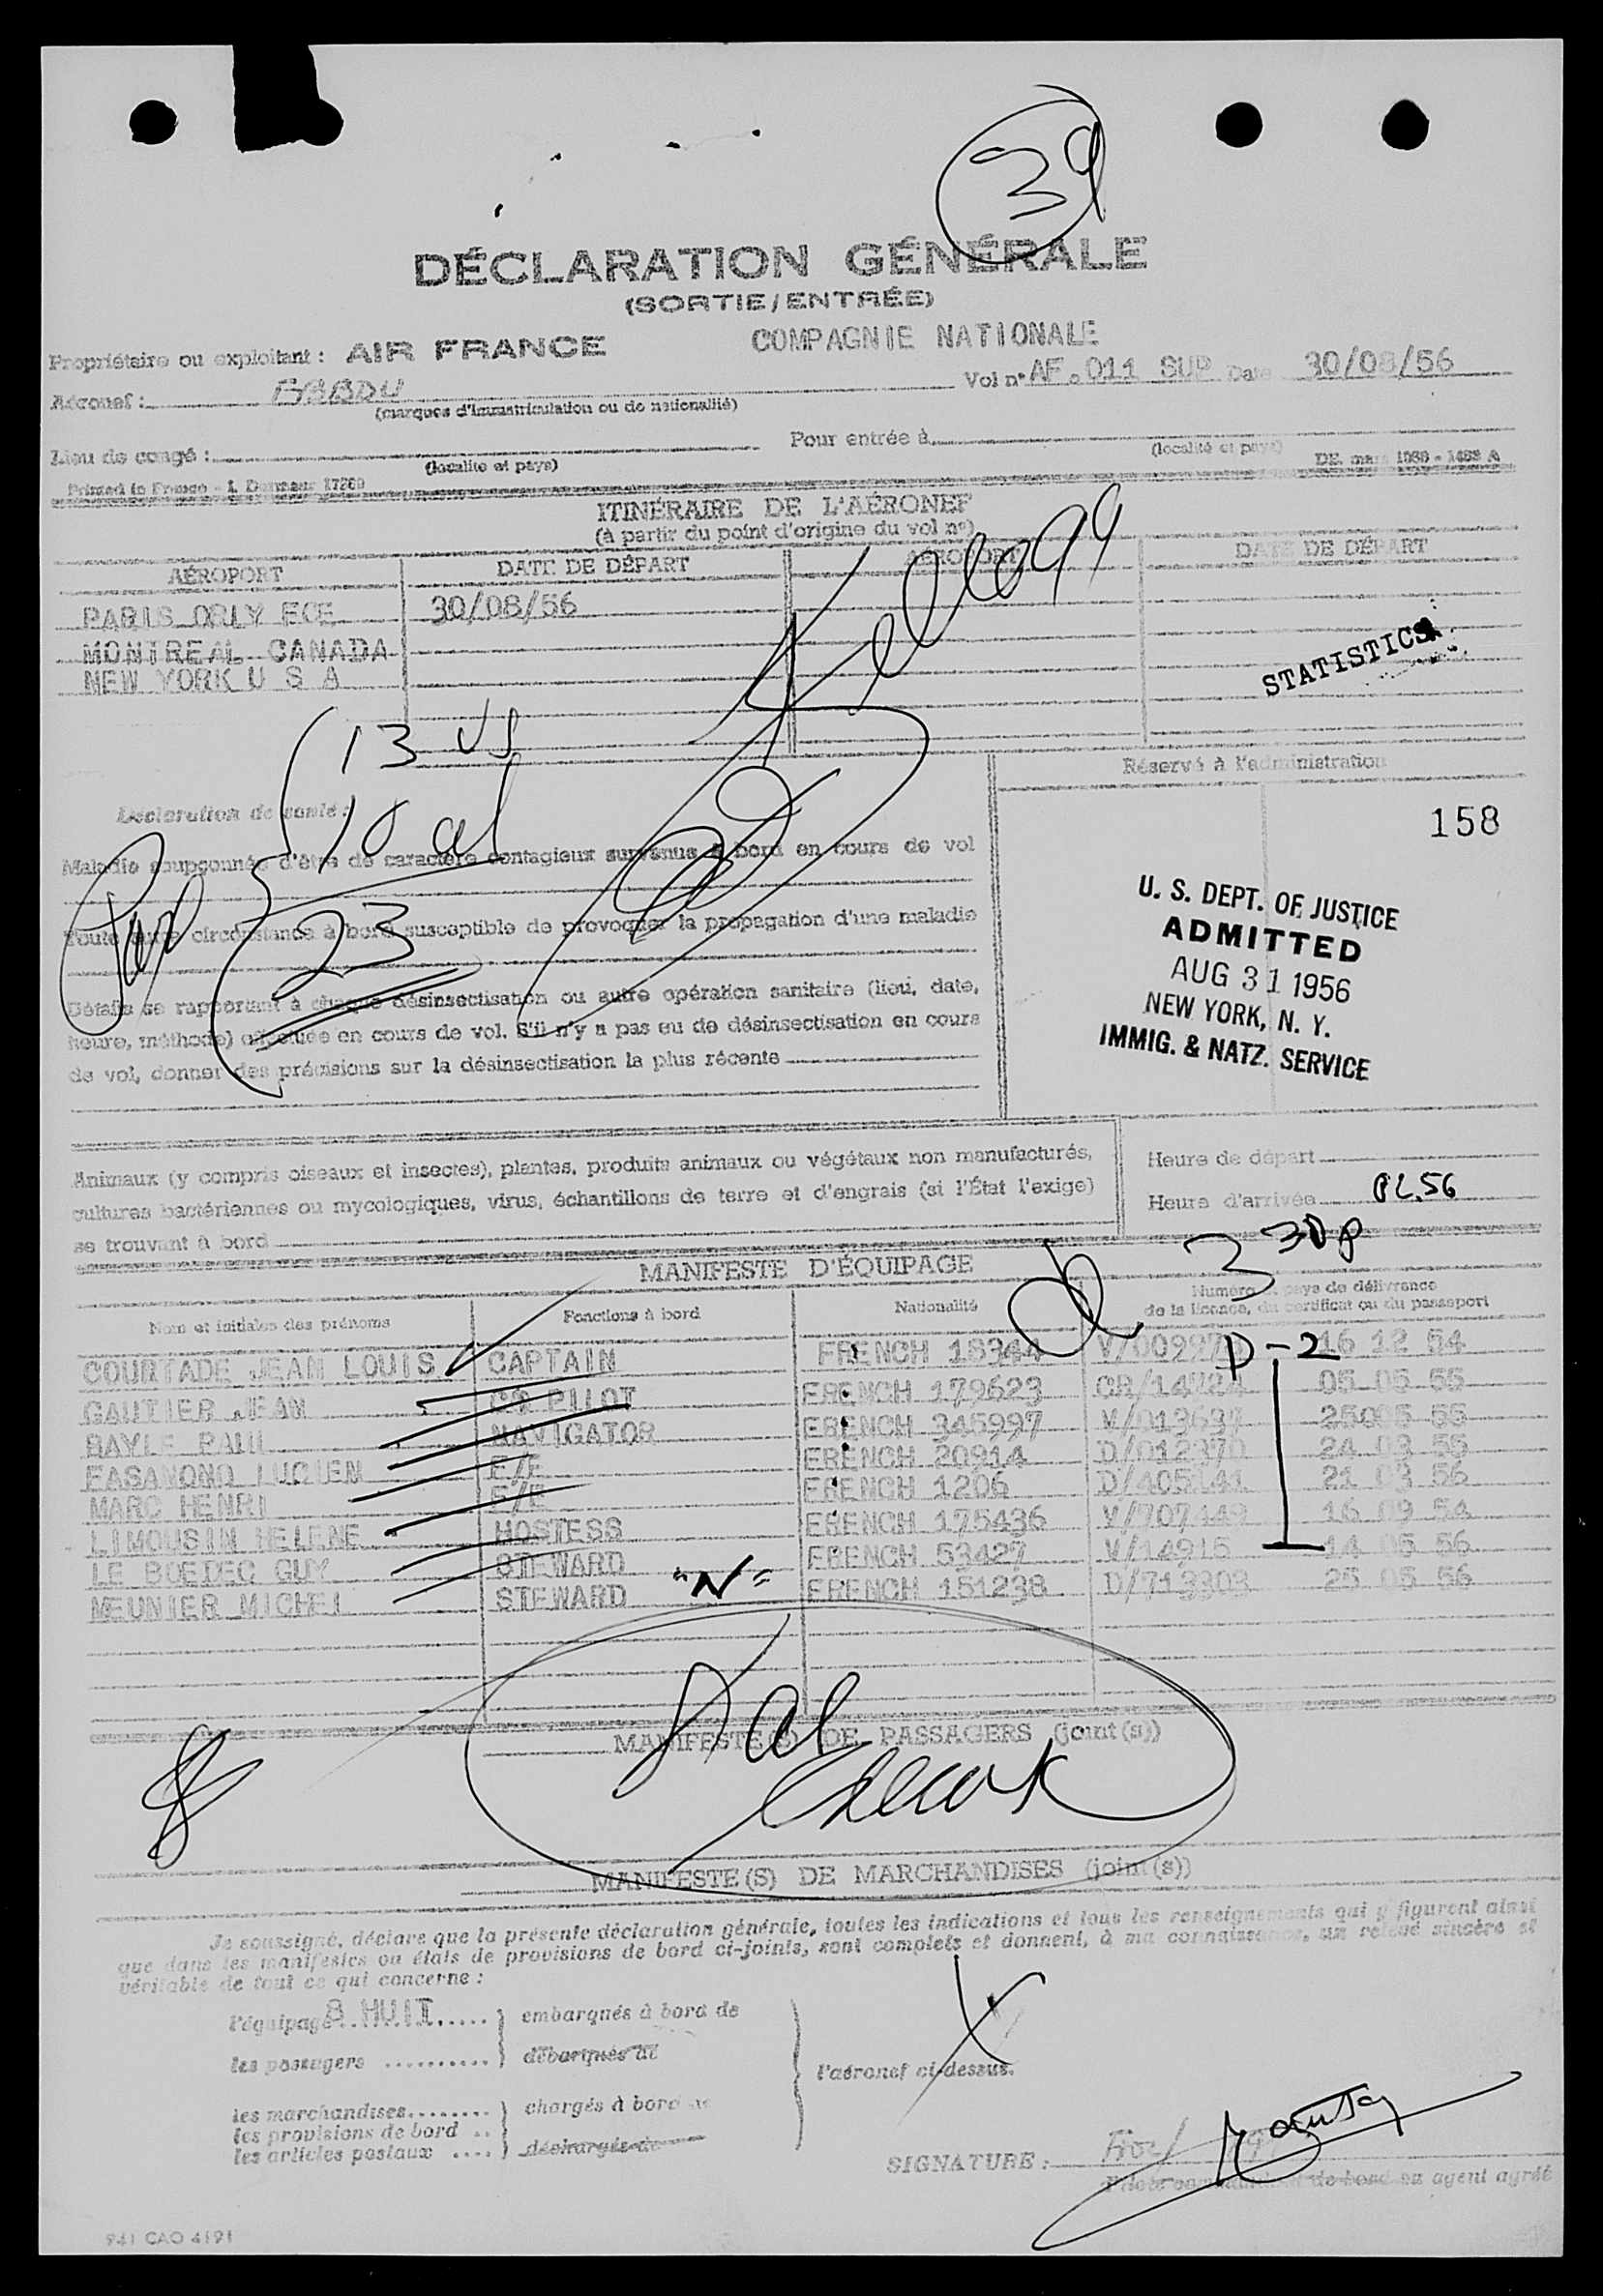 39
DÉCLARATION GÉNÉRALE
(SORTIE/ENTRÉE)
COMPAGNIE NATIONALE
Propriétaire ou exploitant : AIR FRANCE
Vol n° AF.011 SUP Date 30/08/56
Aéronef :
(marques d'immatriculation ou de nationalité)
Lieu de congé : Pour entrée à
(localité et pays) (localité et pays)
Printed in France
ITINÉRAIRE DE L'AÉRONEF
(à partir du point d'origine du vol n°)
AÉROPORT DATE DE DÉPART AÉROPORT DATE DE DÉPART
PARIS ORLY FCE 30/08/56
MONTREAL CANADA
NEW YORK U S A
STATISTICS
13 US
Réservé à l'administration
Déclaration de santé :
10 al
158
Maladie soupçonnée d'être de caractère contagieux survenue à bord en cours de vol
23
Toute autre circonstance à bord susceptible de provoquer la propagation d'une maladie
U. S. DEPT. OF JUSTICE
ADMITTED
AUG 31 1956
NEW YORK, N. Y.
IMMIG. & NATZ. SERVICE
Détails se rapportant à chaque désinsectisation ou autre opération sanitaire (lieu, date,
heure, méthode) effectuée en cours de vol. S'il n'y a pas eu de désinsectisation en cours
de vol, donner des précisions sur la désinsectisation la plus récente
Animaux (y compris oiseaux et insectes), plantes, produits animaux ou végétaux non manufacturés,
cultures bactériennes ou mycologiques, virus, échantillons de terre et d'engrais (si l'État l'exige)
se trouvant à bord
Heure de départ
Heure d'arrivée
3 30 p
MANIFESTE D'ÉQUIPAGE
Nom et initiales des prénoms Fonctions à bord Nationalité Numéro et pays de délivrance
de la licence, du certificat ou du passeport
COURTADE JEAN LOUIS CAPTAIN FRENCH 18344 P-2 16 12 54
GAUTIER JEAN CO PILOT FRENCH 179623 05 05 55
BAYLE PAUL NAVIGATOR FRENCH 345997 55
FASANONO LUCIEN F/E FRENCH 20914 24 03 55
MARC HENRI F/E FRENCH 1206 21 03 56
LIMOUSIN HELENE HOSTESS FRENCH 175436 16 09 54
LE BOEDEC GUY STEWARD FRENCH 53427 V/14915 14 05 56
MEUNIER MICHEL STEWARD "N" FRENCH 151238 D/713303 25 05 56
MANIFESTE(S) DE PASSAGERS (joint(s))
MANIFESTE(S) DE MARCHANDISES (joint(s))
Je soussigné, déclare que la présente déclaration générale, toutes les indications et tous les renseignements qui y figurent ainsi
que dans les manifestes ou états de provisions de bord ci-joints, sont complets et donnent, à ma connaissance, un relevé sincère et
véritable de tout ce qui concerne :
l'équipage 8 HUIT embarqués à bord de
les passagers débarqués de
l'aéronef ci-dessus.
les marchandises chargés à bord de
les provisions de bord
les articles postaux déchargés de
SIGNATURE :
Pilote commandant de bord ou agent agréé
941 CAO 4191